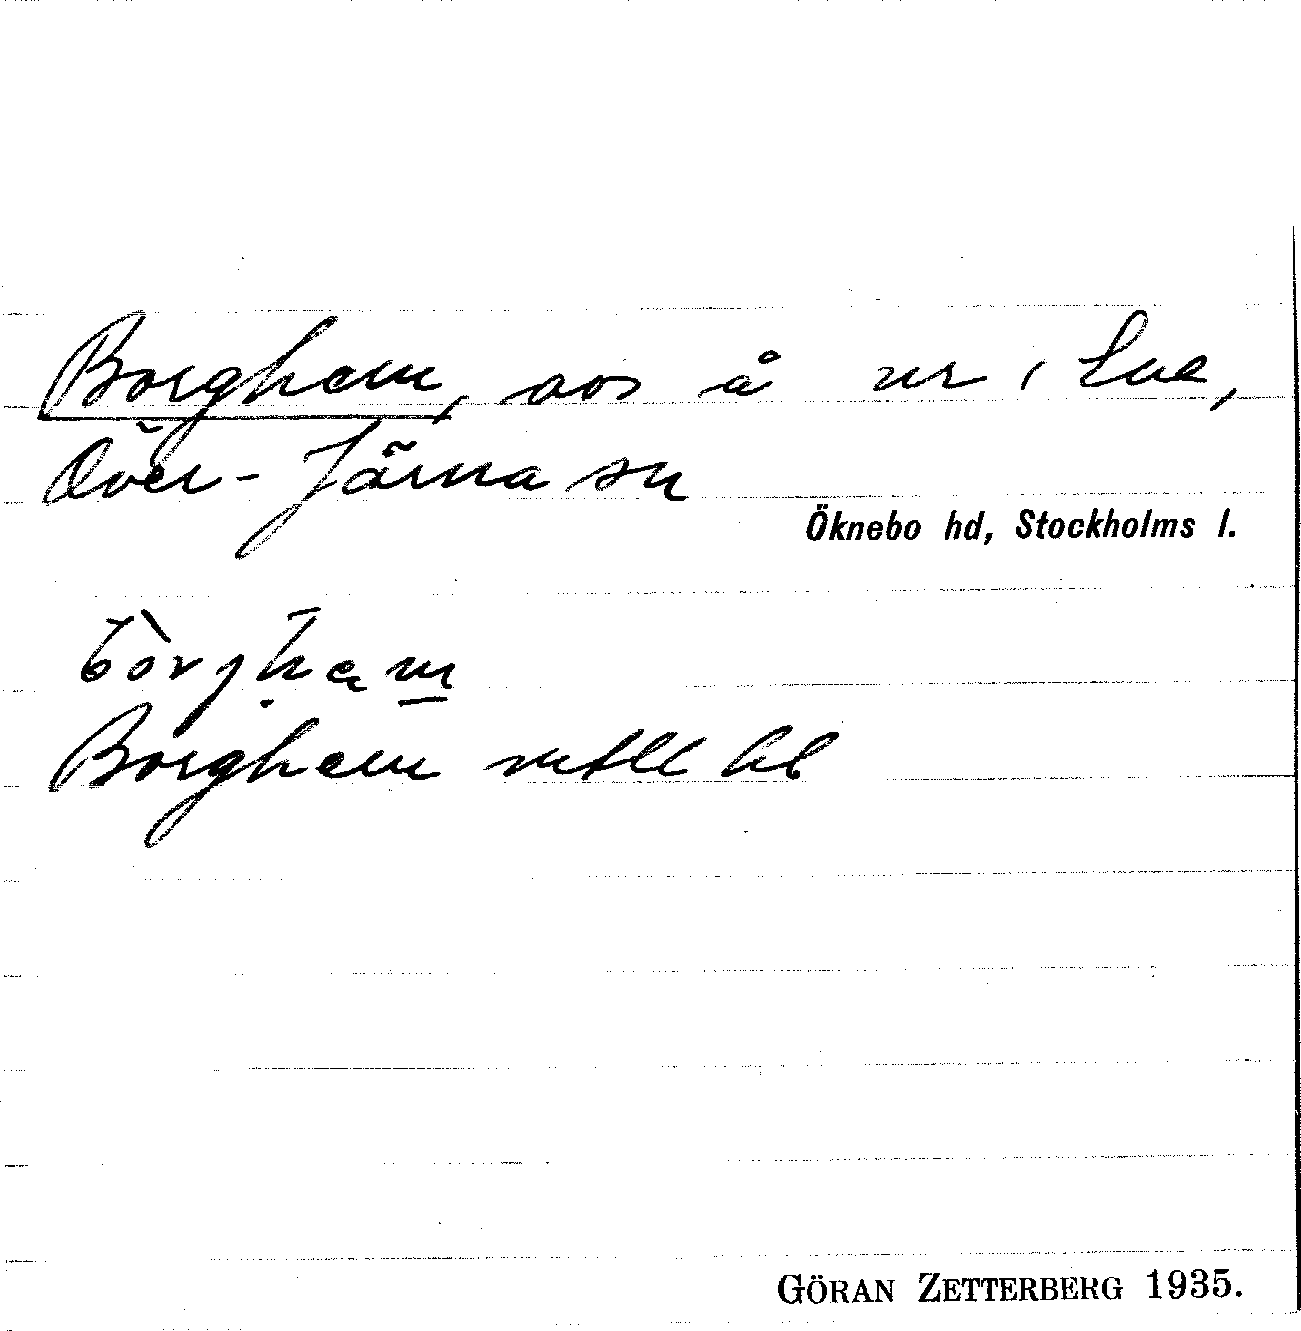 Borghem, avs å nr 1 Lve,
Över-Järna sn
Öknebo hd, Stockholms l.
Borghem mtll bl
GÖRAN ZETTERBERG 1935.